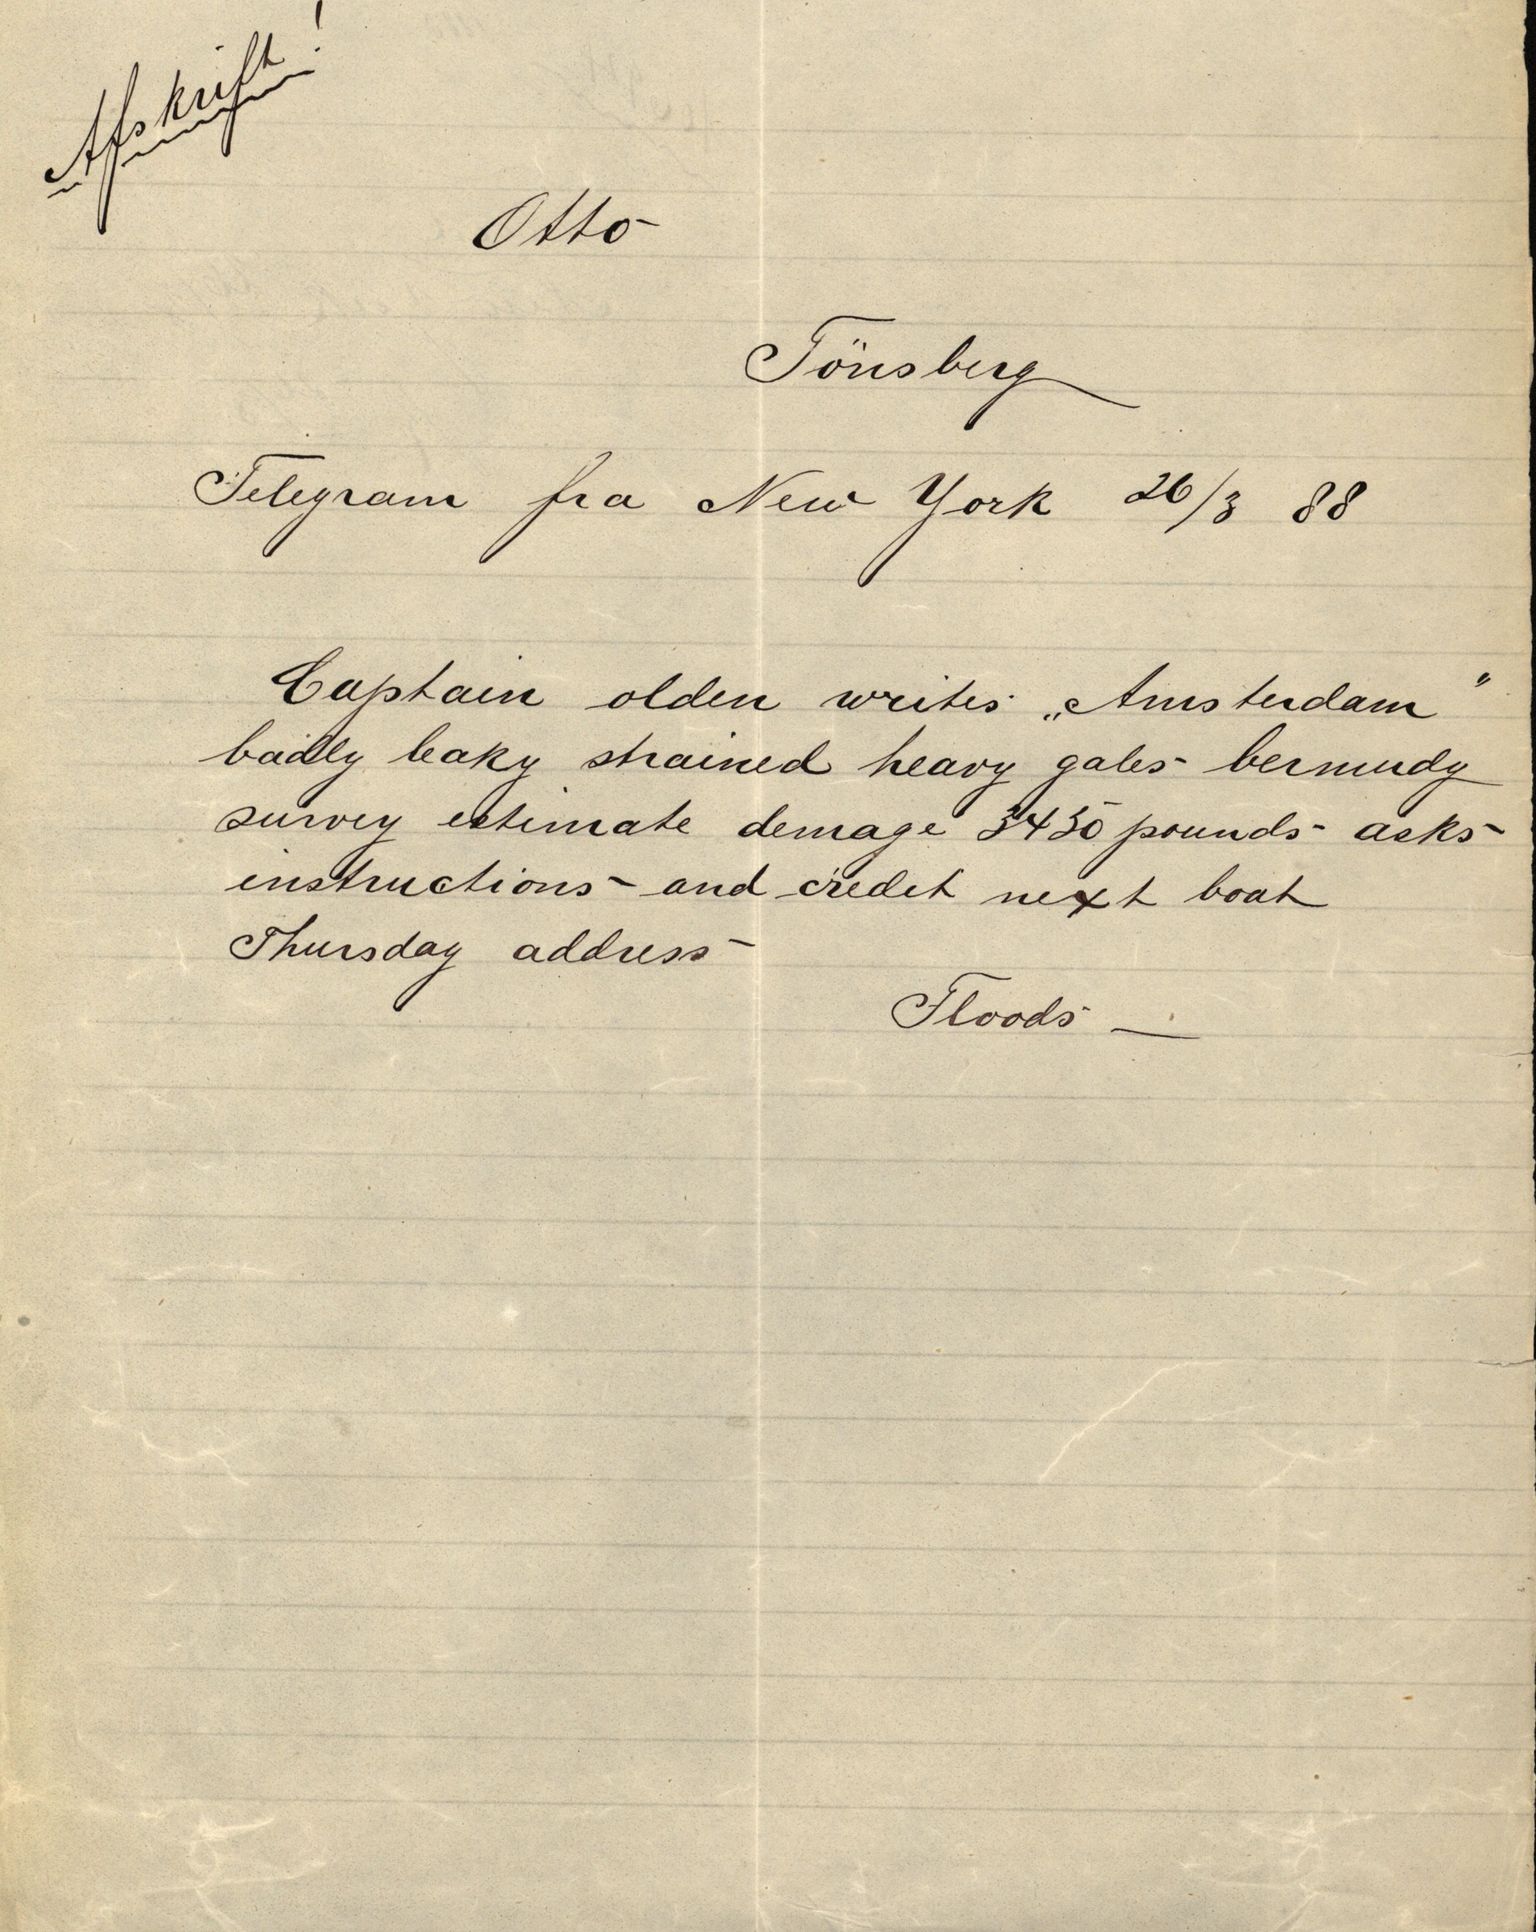 Afskrift!
Otto
Tönsberg
Telegram fra New York 26/3 88
Captain olden writes „Amsterdam"
badly leaky strained heavy gales bermudy
survey estimate demage 3430 pounds asks
instructions and credit next boat
Thursday address
Floods —